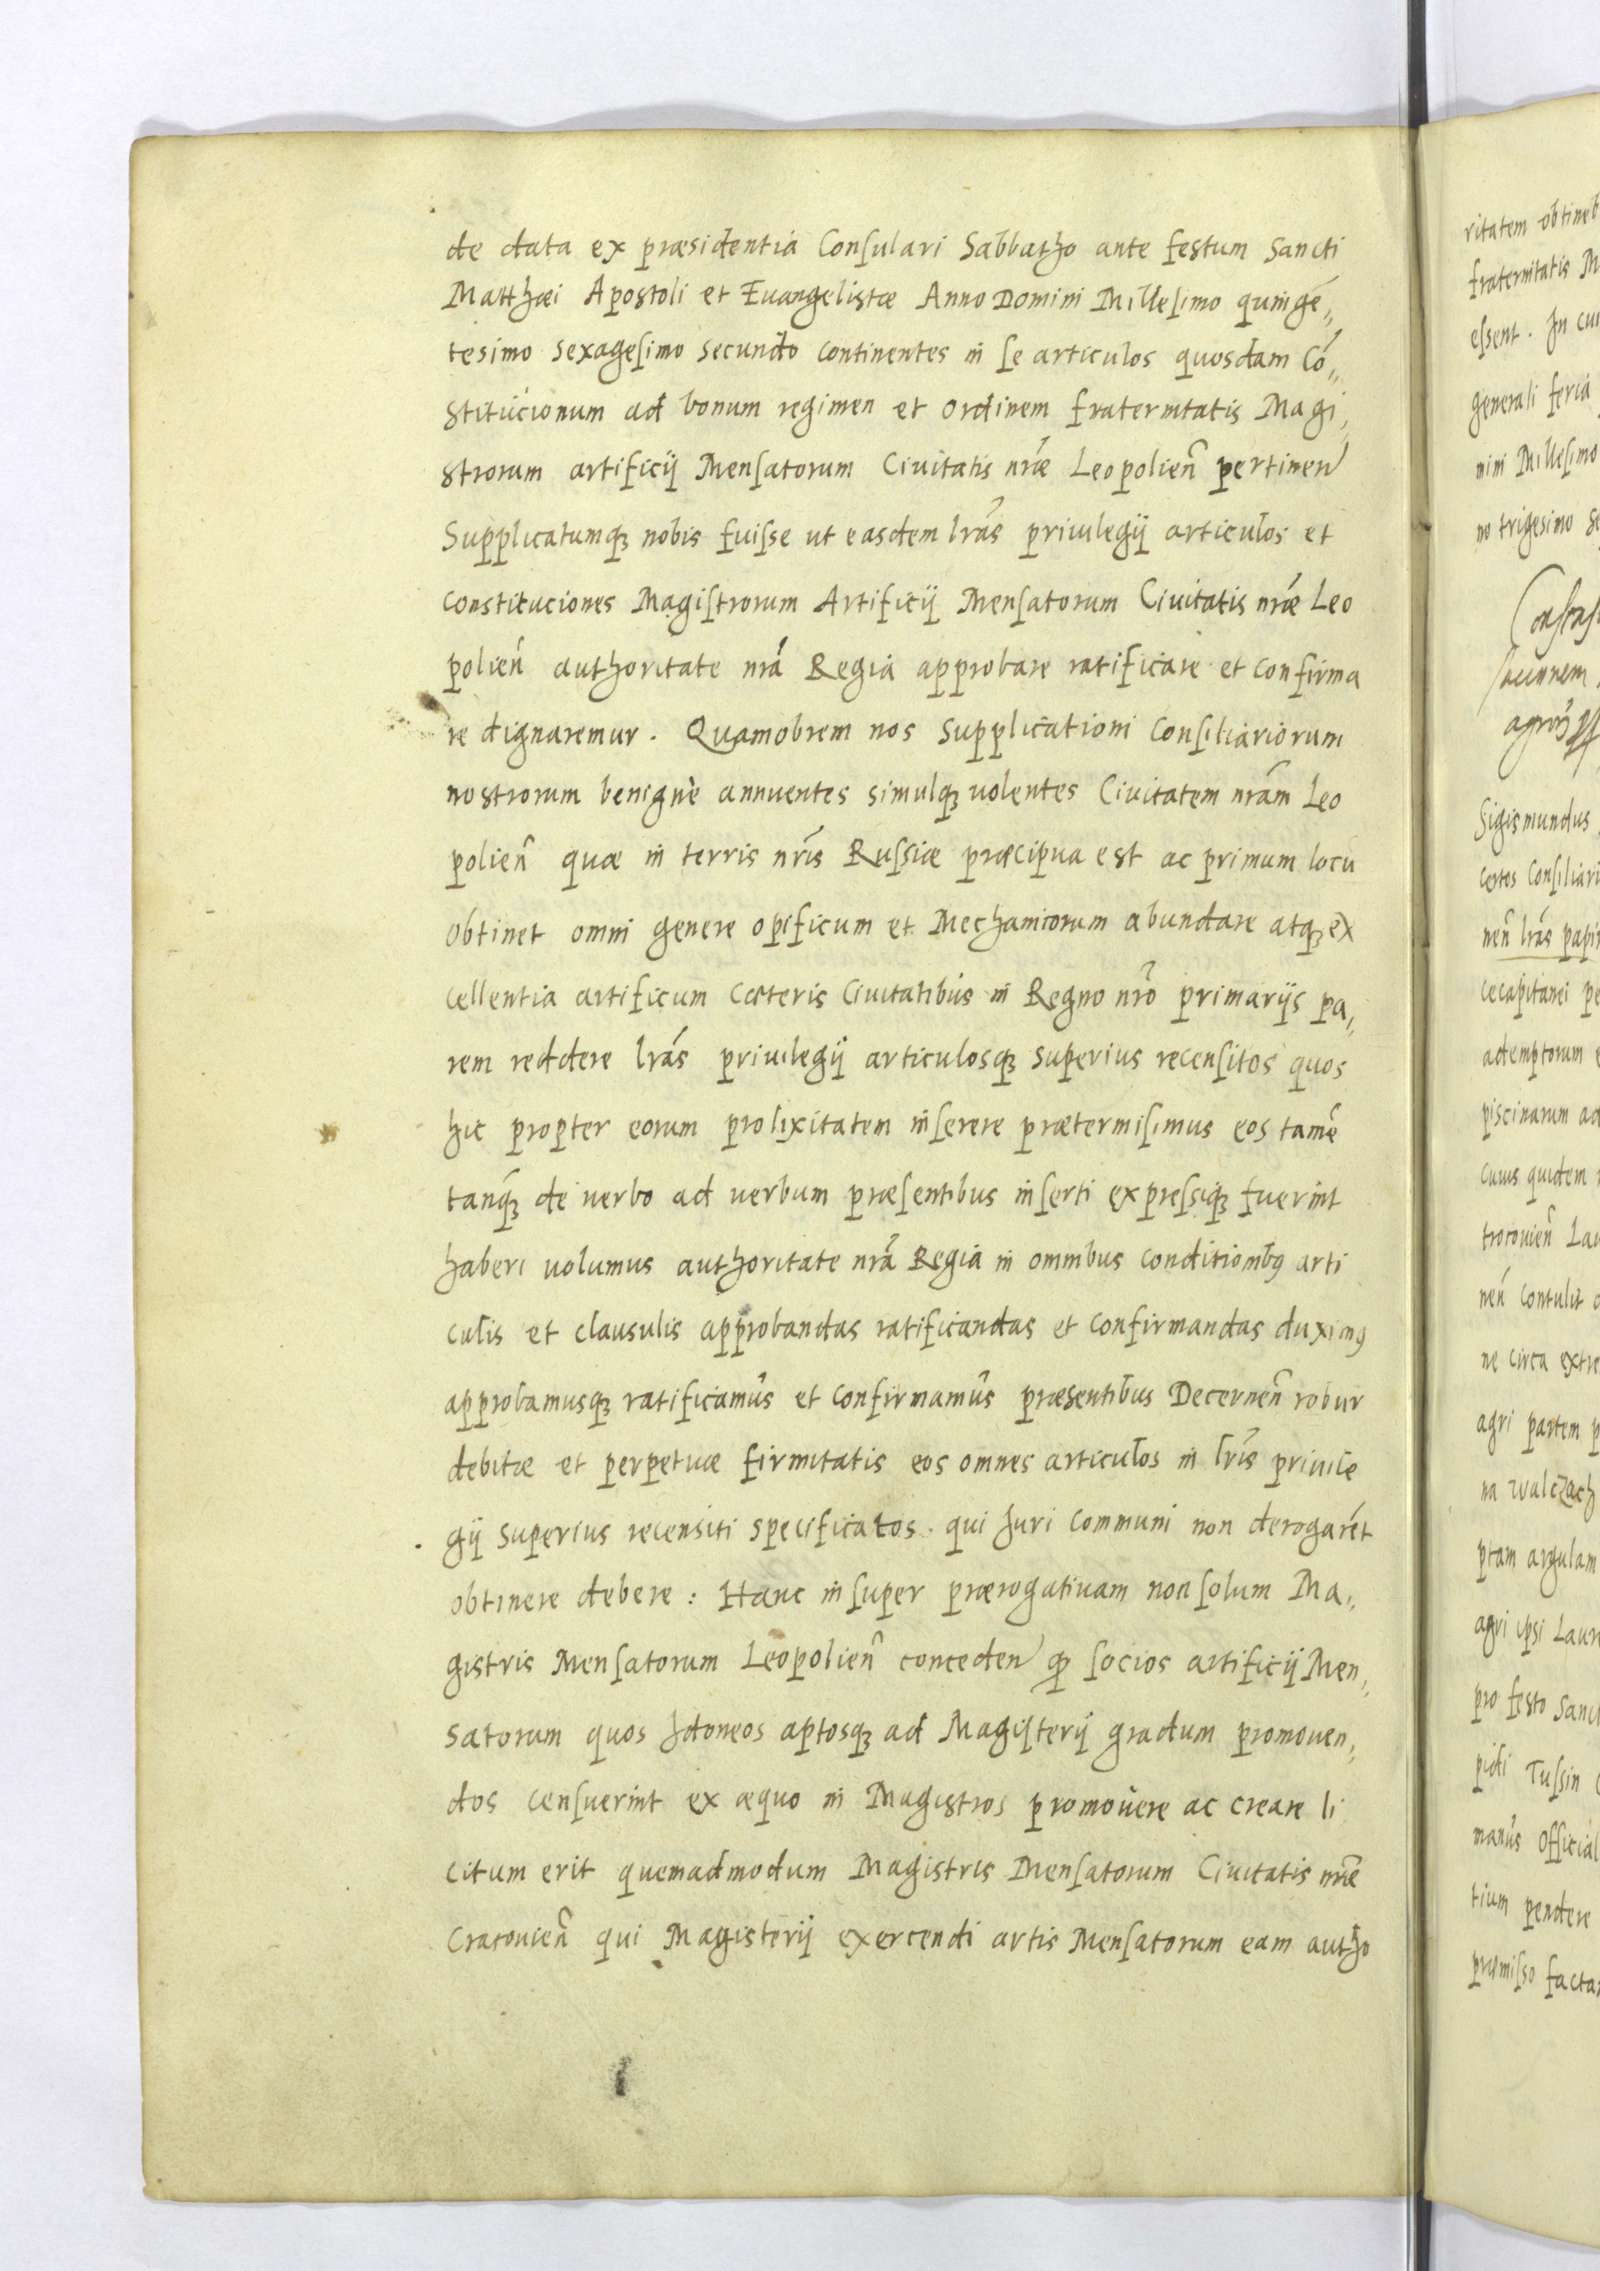 de data ex præsidentia Consulari Sabbatho ante festum Sancti
Matthæi Apostoli et Euangelistæ Anno Domini Millesimo quingē„
tesimo sexagesimo secundo continentes in se articulos quosdam Cō„
stitucionum ad bonum regimen et ordinem fraternitatis Magi„
strorum artificij Mensatorum Ciuitatis nr̃æ Leopolien̄ pertinen̄
Supplicatumq; nobis fuisse ut easdem lr̃as priuilegij articulos et
constituciones Magistrorum Artificij Mensatorum Ciuitatis nr̃æ Leo
polien̄ authoritate nr̃a Regia approbare ratificare et confirma
re dignaremur. Quamobrem nos supplicationi Consiliariorum
nostrorum benignè annuentes simulq; uolentes Ciuitatem nr̃am Leo
polien̄ quæ in terris nr̃is Russiæ præcipua est ac primum locū
obtinet omni genere opificum et Mechanicorum abundare atq; ex
cellentia artificum Cæteris Ciuitatibus in Regno nr̃o primarijs pa„
rem reddere lr̃as priuilegij articulosq; superius recensitos quos
hic propter eorum prolixitatem inserere prætermisimus eos tamē
tanq̃; de uerbo ad uerbum præsentibus inserti expressiq; fuerint
haberi uolumus authoritate nr̃a Regia in omnibus conditionib9 arti
culis et clausulis approbandas ratificandas et confirmandas duxim9
approbamusq; ratificamus et confirmamus præsentibus Decernen̄ robur
debitæ et perpetuæ firmitatis eos omnes articulos in lr̃is priuile
gij superius recensiti specificatos. qui Juri communi non derogarēt
obtinere debere: Hanc insuper prærogatiuam non solum Ma„
gistris Mensatorum Leopolien̄ conceden̄ q̃ socios artificij Men„
satorum quos Jdoneos aptosq; ad Magisterij gradum promouen„
dos censuerint ex æquo in Magistros promouere ac creare li
citum erit quemadmodum Magistris Mensatorum Ciuitatis nr̃æ
Cracouien̄ qui Magisterij exercendi artis Mensatorum eam autho
ritatem obtineb
fraternitatis M
essent. Jn cui
generali feria
mini Millesimo
no trigesimo se
Sigismundus
certos Consiliari
nen̄ lr̃as papir
cecapitanei pe
ademptorum e
piscinarum ad
Cuius quidem
trocouien̄ Lau
nen̄ contulit
ne circa extre
agri partem p
na walczach
ptam argulam
agri ipsi Laur
pro festo Sanc
pidi Tussin
manus official
tium pendere
præmisso facta